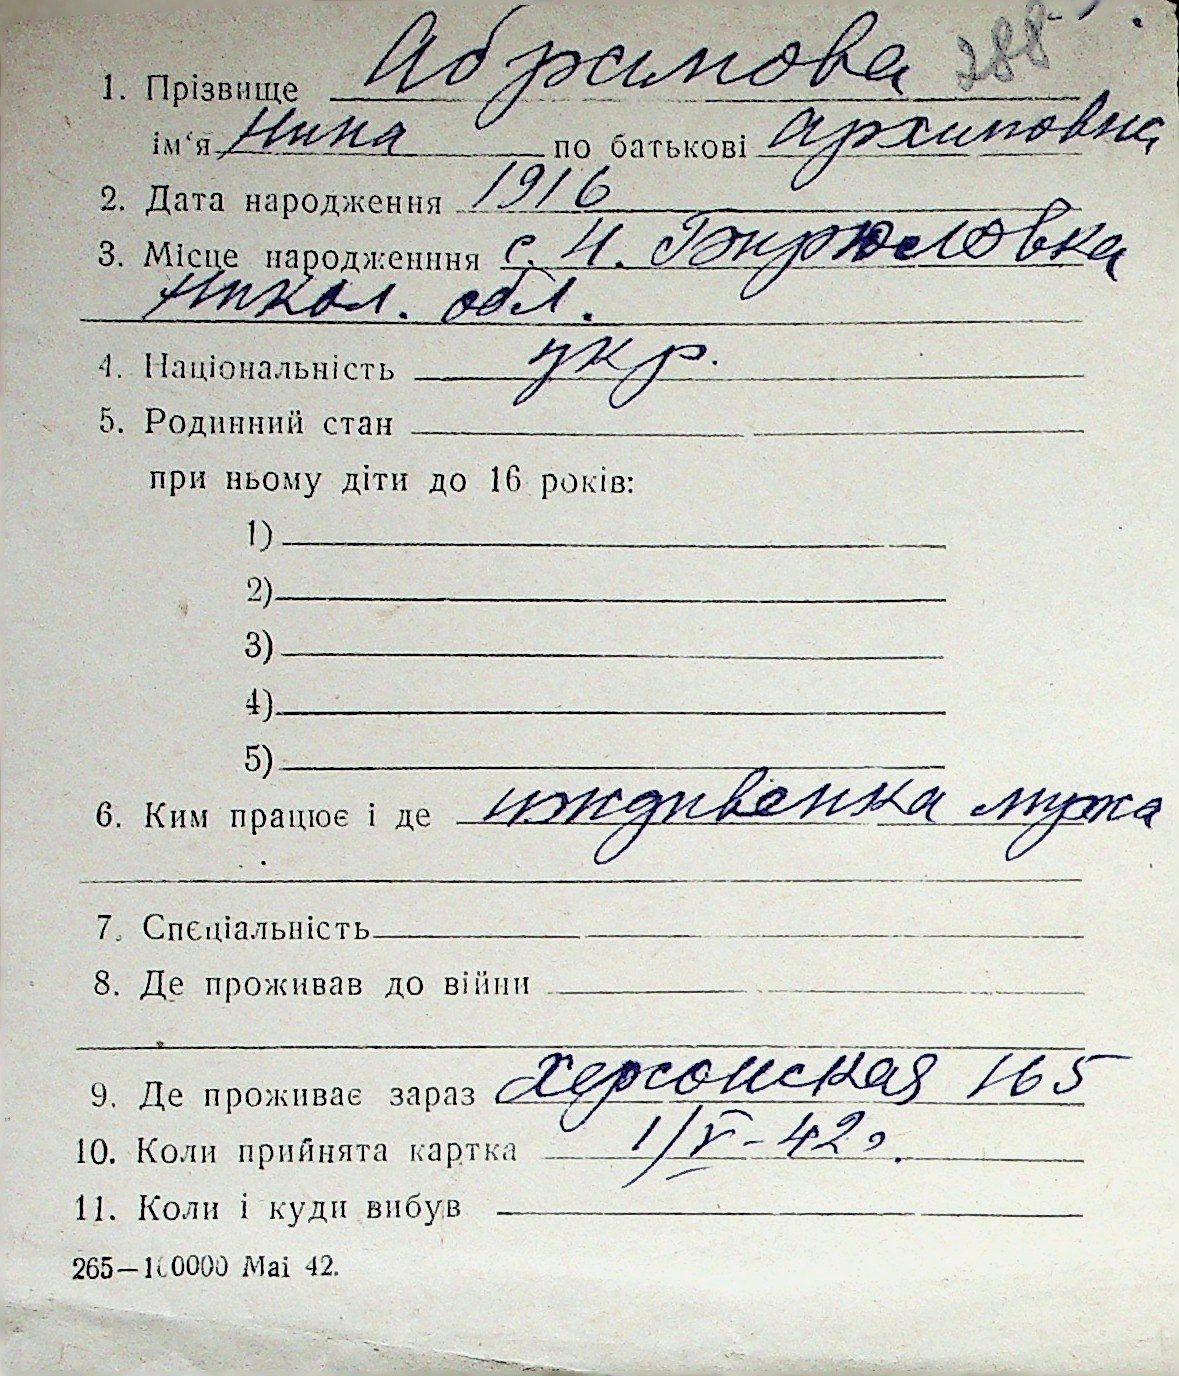 288
1. Прізвище Абрамова
ім'я Нина по батькові Архиповна
2. Дата народження 1916
3. Місце народженння с. Н. Бирюловка
Никол. обл.
4. Національність укр.
5. Родинний стан
при ньому діти до 16 років:
1)
2)
3)
4)
5)
6. Ким працює і де иждивенка мужа
7. Спєціальність
8. Де проживав до війни
9. Де проживає зараз Херсонская 165
10. Коли прийнята картка 1/V-42г.
11. Коли і куди вибув
265—100000 Mai 42.